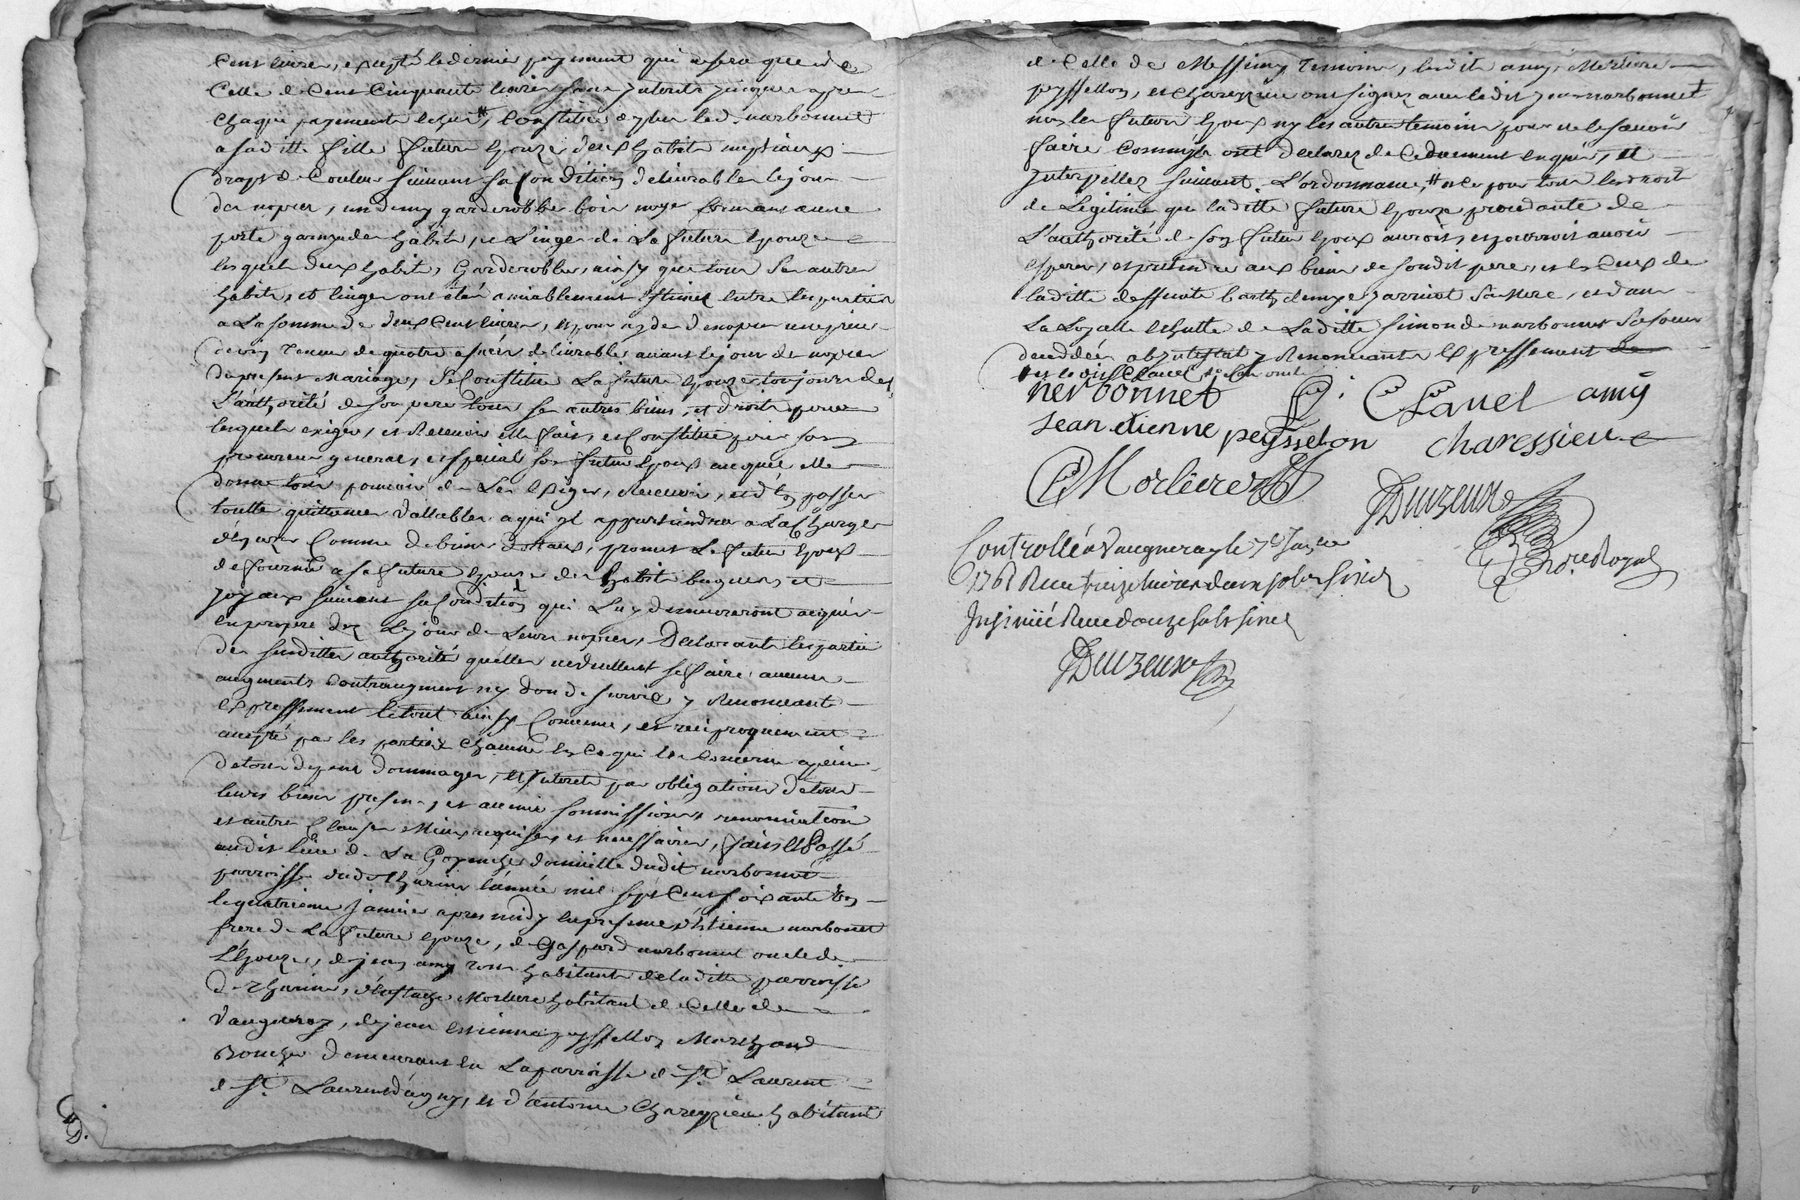 Cent livres, excepté le dernier payement qui ne sera que de
Celle de Cent Cinquante livres sans Interets jusques apres
Chaque payement echeu #, Constitue de plus led. narbonnet
a sa ditte fille future Epouze deux habits nuptiaux
draps de Couleur suivant sa Condition delivrables le jour
des nopces, un demy garderobbe bois noyer fermant a une
porte garny des habits, et Linges de La future Epouze
lesquels deux habits, Garderobbe, ainsy que tous Ses autres
habits, et linges ont étés amiablement Estimés Entre les parties
a La somme de deux Cent livres, et pour ayde de nopces
delivrable avant le jour des nopces
du present Mariage, Se Constitue La future Epouze toujours de
L'authorité de son pere tous ses autres biens, et droits pour
lesquels exiger, et Recevoir elle fait, et Constitue pour son
procureur general, et special son futur Epoux auquel elle
donne tout pouvoir de Les Exiger, Recevoir, et d'En passer
toutte quittance vallable a qui il appartiendra a La Charge
d'En jouir Comme de biens dottaux, promet Le futur Epoux
de fournir a sa future Epouze des habits bagues, et
joyaux suivant sa Condition qui Luy demeureront acquis
En propre dez Le jour de Leurs nopces, Declarant Les parties
des susdittes authorité qu'elles ne veullent se faire aucun
augments Contraugment ny don de survie y Renonceant
Expressement Le tout ainsy Convenu, et reciproquement
accepté par les parties Chacune En Ce qui Les Concerne a peine
de tous depens dommages, et Interets par obligations de tous
leurs biens presens, et avenir soumissions renonciation
et autres Clauses Mieux requises, et necessaires, fait et Passé
audit lieu de La domicille dudit narbonnet
parroisse dudit thurins l'année mil sept Cent soixante un
le quatrieme Janvier apres midy En presence d'Etienne narbonnet
frere de La future Epouze, de Gaspard narbonnet oncle de
L'Epouze, de jean amy tous habitants de laditte parroisse
de Thurins, d'Eustache Morliere habitant de Celle de
Vaugneray, de jean etienne peyssellon Marchand
Boucher demeurant En La parroisse de St. Laurent
de St. Laurent d'agny, et d'antoine Chareyzieu habitant
de Celle de Messimy Temoins, lesdits amy, Morliere
peyssellon, et Chareyzieu ont signez avec ledit jean narbonnet
non les futurs Epoux ny les autres temoins pour ne le sçavoir
faire Comme ils ont Declarez de Ce duement Enquis, et
Interpellez suivant L'ordonnance, # et ce pour tous les droits
de Legitime que laditte future Epouze procedante de
L'authorité de son futur Epoux auroit, et pourroit avoir
esperer, et pretendre aux biens de sondit pere, et Ceux de
laditte deffunte barthelemye jarricot Sa Mere, et dans
La Loyalle Echutte de Laditte Simonde narbonnet Sa soeur
deceddée ab intestat y Renonceant Expressement
nerbonnet C Chavel amy
jean etienne peysselon charessieu
E Morliere
Duzeux
no.re Royal
Controllé a Vaugneray le 7e Janvier
1761 Receu treize livres deux sols six d
Insinüé Receu douze sols six d
Duzeux